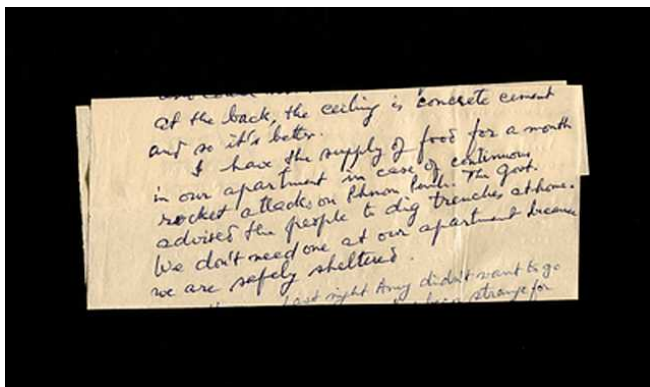 at the back, the ceiling is concrete cement
and so it's better.
I have the supply of food for a month
in our apartment in case of continuous
rocket attacks on Phnom Penh. The Govt.
advised the people to dig trenches at home.
We don't need one at our apartment because
we are safely sheltered.
Last night Amy didn't want to go
strange for